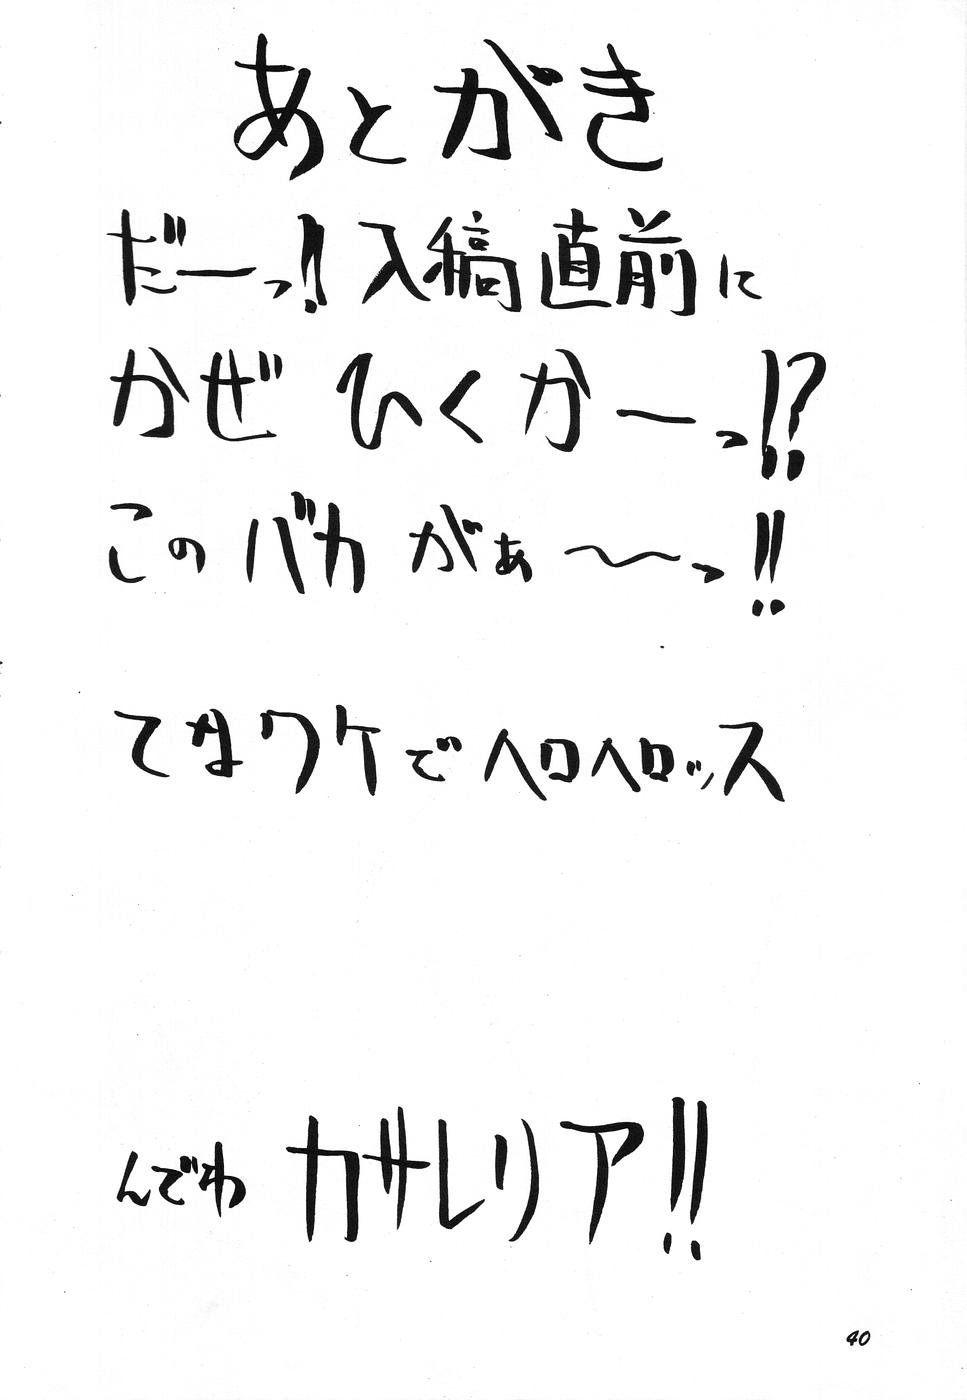 あとがき
だーっ!入稿直前に
かぜ ひくかーっ!?
このバカがぁ〜〜っ!!
てなワケでヘロヘロッス
んでわ カサレリア!!
40